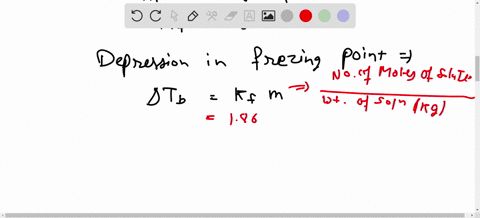 Depression in freezing point ⇒
ΔT_b = K_f m ⇒ No. of Moles of Solute
wt. of Soln (kg)
= 1.86